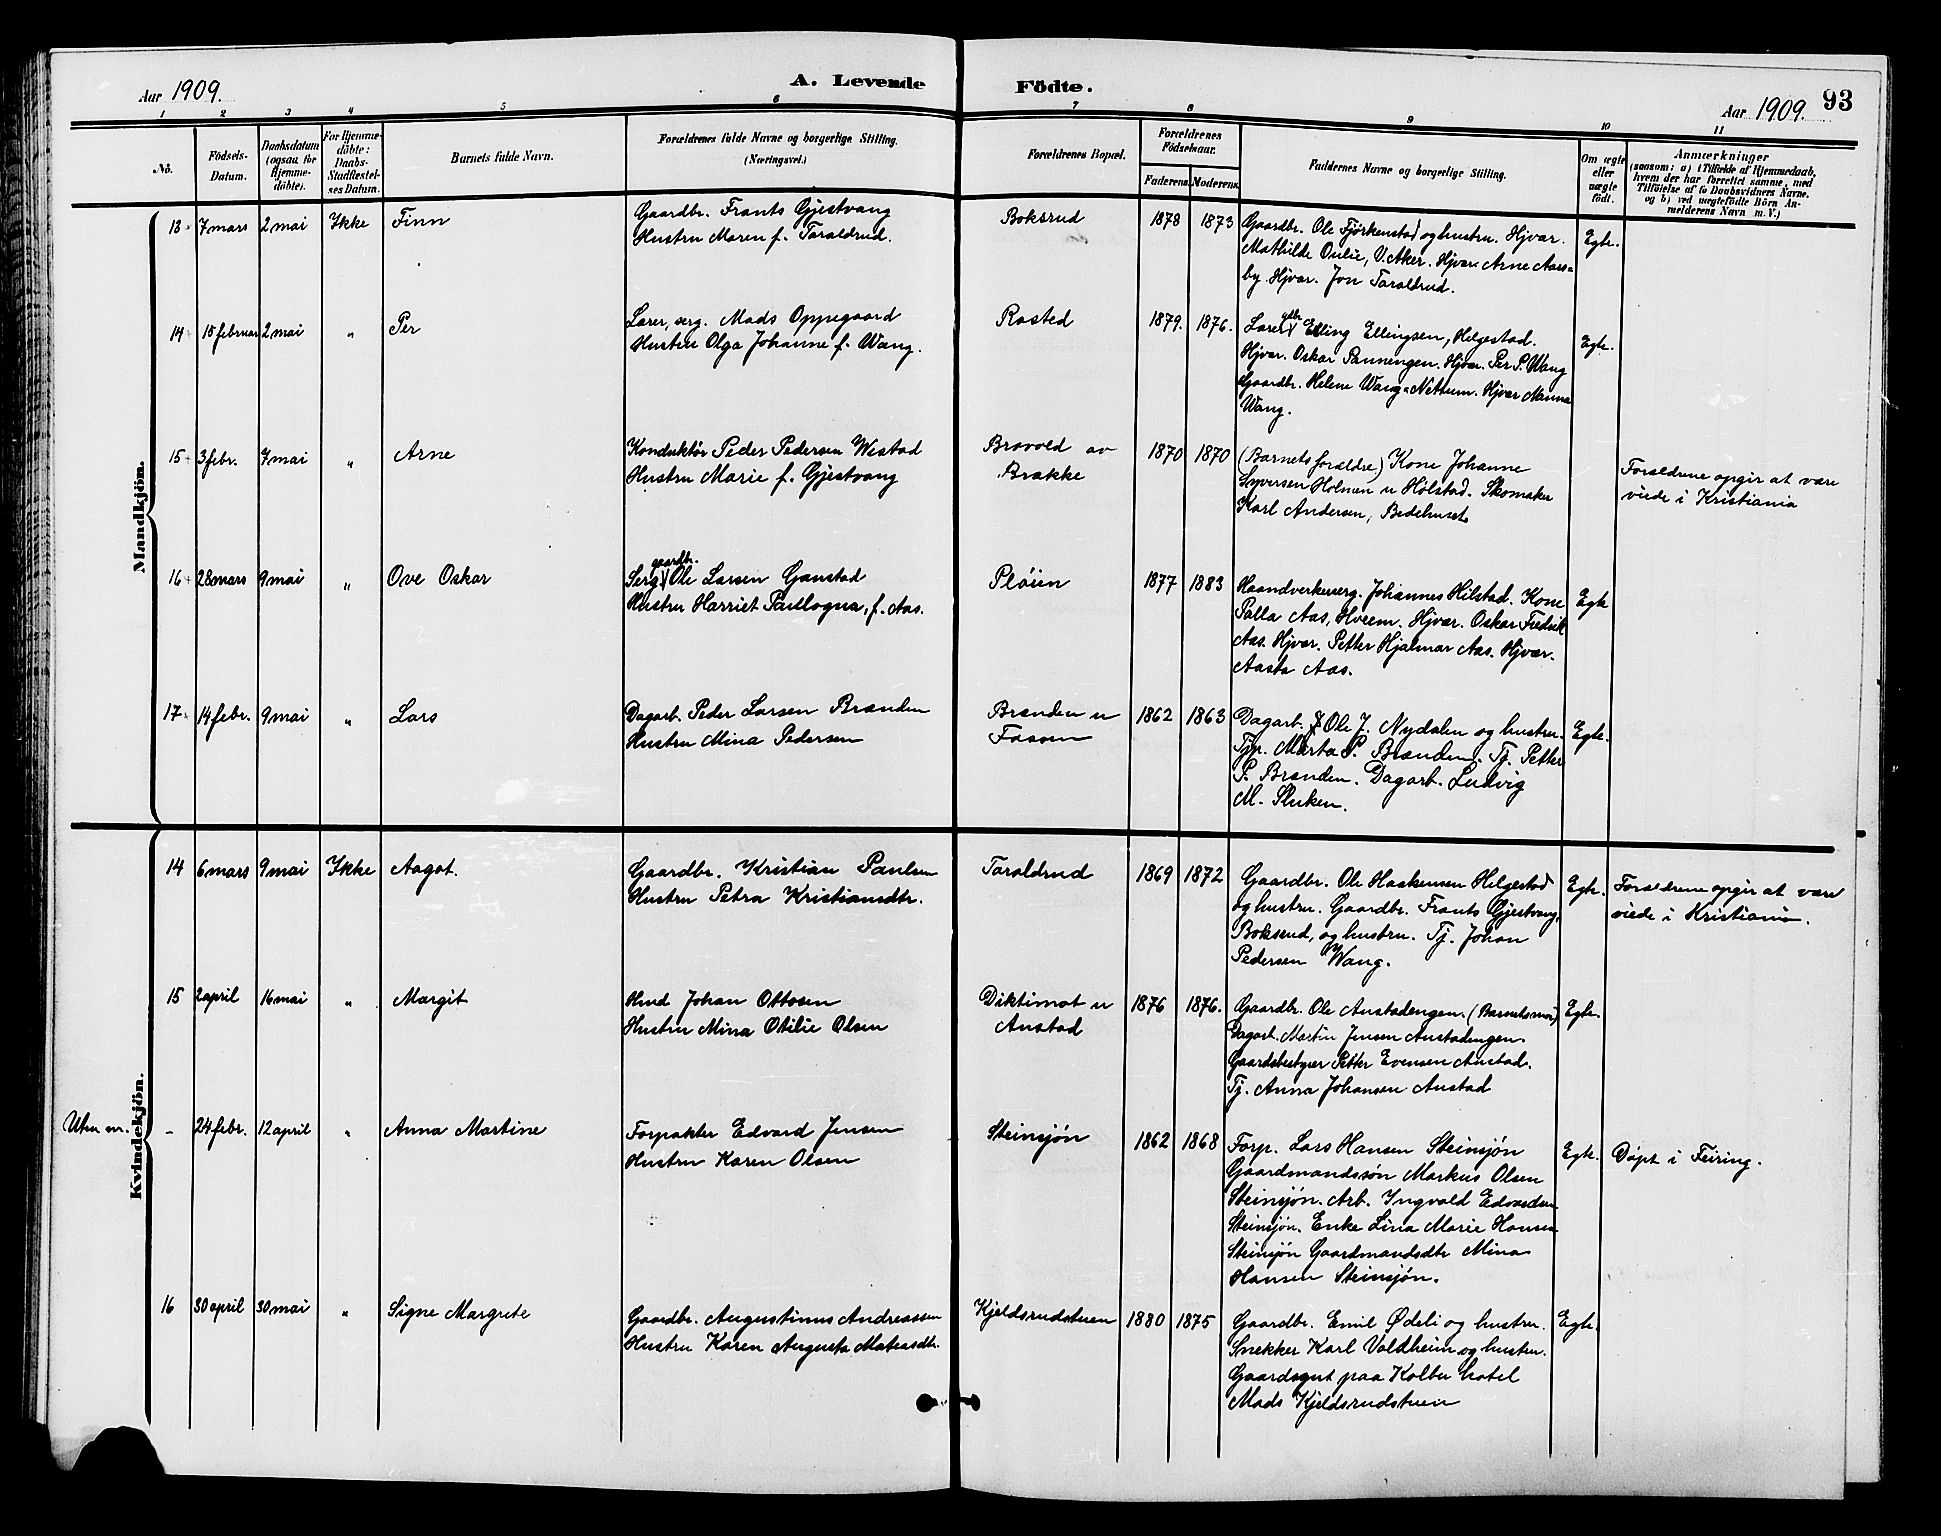 Aar 1909.
A. Levende Födte.
Aar 1909.
93
1 2 3 4 5 6 7 8 9 10 11
No.
Födsels-
Datum.
Daabsdatum
(ogsaa for
Hjemme-
döbte).
For Hjemme-
döbte:
Daabs-
Stadfæstel-
ses Datum.
Barnets fulde Navn.
Forældrenes fulde Navne og borgerlige Stilling.
(Næringsvei.)
Forældrenes Bopæl.
Forældrenes
Födselsaar.
Faderens. Moderens.
Faddernes Navne og borgerlige Stilling.
Om ægte
eller
uægte
født.
Anmærkninger
(saasom: a) i Tilfælde af Hjemmedaab,
hvem der har forrettet samme, med
Tilföielse af to Daabsvidners Navne,
og b) ved uegtefödte Börn An-
melderens Navn m. V.)
Mandkjön.
13 7 mars 2 mai Ikke Finn
Gaardbr. Frants Gjestvang
Hustru Maren f. Taraldrud.
Boksrud
1878 1873
Gaardbr. Ole Fjørkenstad og hustru. Hjvar.
Mathilde Oulie, V. Aker. Hjvar. Arne Aars-
by. Hjvar. Jon Taraldrud.
Egte.
14 15 februar 2 mai " Per
Lærer, serg. Mads Oppegaard
Hustru Olga Johanne f. Wang.
Rosted
1879. 1876.
Lærer gdbr. Elling Ellingsen, Helgestad.
Hjvar. Oskar Panningen. Hjvar. Per P. Wang
Gaardbr. Helene Wang-Nettum. Hjvar Manna
Wang.
Egte.
15 3 febr. 7 mai " Arne
Konduktør Peder Pedersen Westad
Hustru Marie f. Gjestvang
Bravold av
Brække
1870 1870
(Barnets forældre.) Kone Johanne
Syversen Holmen u Hølstad. Skomaker
Karl Andersen, Bedehuset.
Forældrene opgir at være
viede i Kristiania
16 28 mars 9 mai " Ove Oskar
Serg. gaardbr. Ole Larsen Ganstad
Hustru Harriet Paulogna, f. Aas.
Pløien
1877 1883
Haandverkerserg. Johannes Hilstad. Kone
Palla Aas, Hveem. Hjvar. Oskar Fredrik
Aas. Hjvar. Petter Hjalmar Aas. Hjvar.
Aasta Aas.
Egte
17 14 febr. 9 mai " Lars
Dagarb. Peder Larsen Brænden
Hustru Mina Pedersen
Brænden u
Fossen
1862 1863
Dagarb. Ole J. Nydalen og hustru.
Tjp. Marta P. Brænden. Tj. Petter
P. Brænden. Dagarb. Ludvig
M. Sluken.
Egte.
Kvindekjön.
14 6 mars 9 mai Ikke Aagot.
Gaardbr. Kristian Paulsen
Hustru Petra Kristiansdtr.
Taraldrud
1869 1872
Gaardbr. Ole Haakensen Helgestad
og hustru. Gaardbr. Frants Gjestvang,
Boksrud, og hustru. Tj. Johan
Pedersen Wang.
Egte.
Forældrene opgir at være
viede i Kristiania.
15 2 april 16 mai " Margit
Hmd Johan Ottosen
Hustru Mina Otilie Olsen
Diktimot u
Anstad
1876 1876.
Gaardbr. Ole Anstadengen. (Barnets mor)
Dagarb. Martin Jensen Anstadengen.
Gaardsbestyrer Petter Evensen Anstad.
Tj. Anna Johansen Anstad
Egte.
Uten nr. - 24 febr. 12 april " Anna Martine
Forpakter Edvard Jensen
Hustru Karen Olsen
Steinsjøn
1862 1868
Forp. Lars Hansen Steinsjøn
Gaardmandssøn Markus Olsen
Steinsjøn. Arb. Ingvald Edvardsen
Steinsjøn. Enke Lina Marie Hansen
Steinsjøn Gaardmandsdtr Mina
Hansen Steinsjøn.
Egte.
Døpt i Feiring.
16 30 april 30 mai " Signe Margrete
Gaardbr. Augustinus Andreassen
Hustru Karen Augusta Mateasdtr.
Kjeldsrudstuen
1880 1875
Gaardbr. Emil Ødeli og hustru.
Snekker Karl Valdheim og hustru.
Gaardsgut paa Kolbu hotel
Mads Kjeldsrudstuen
Egte.